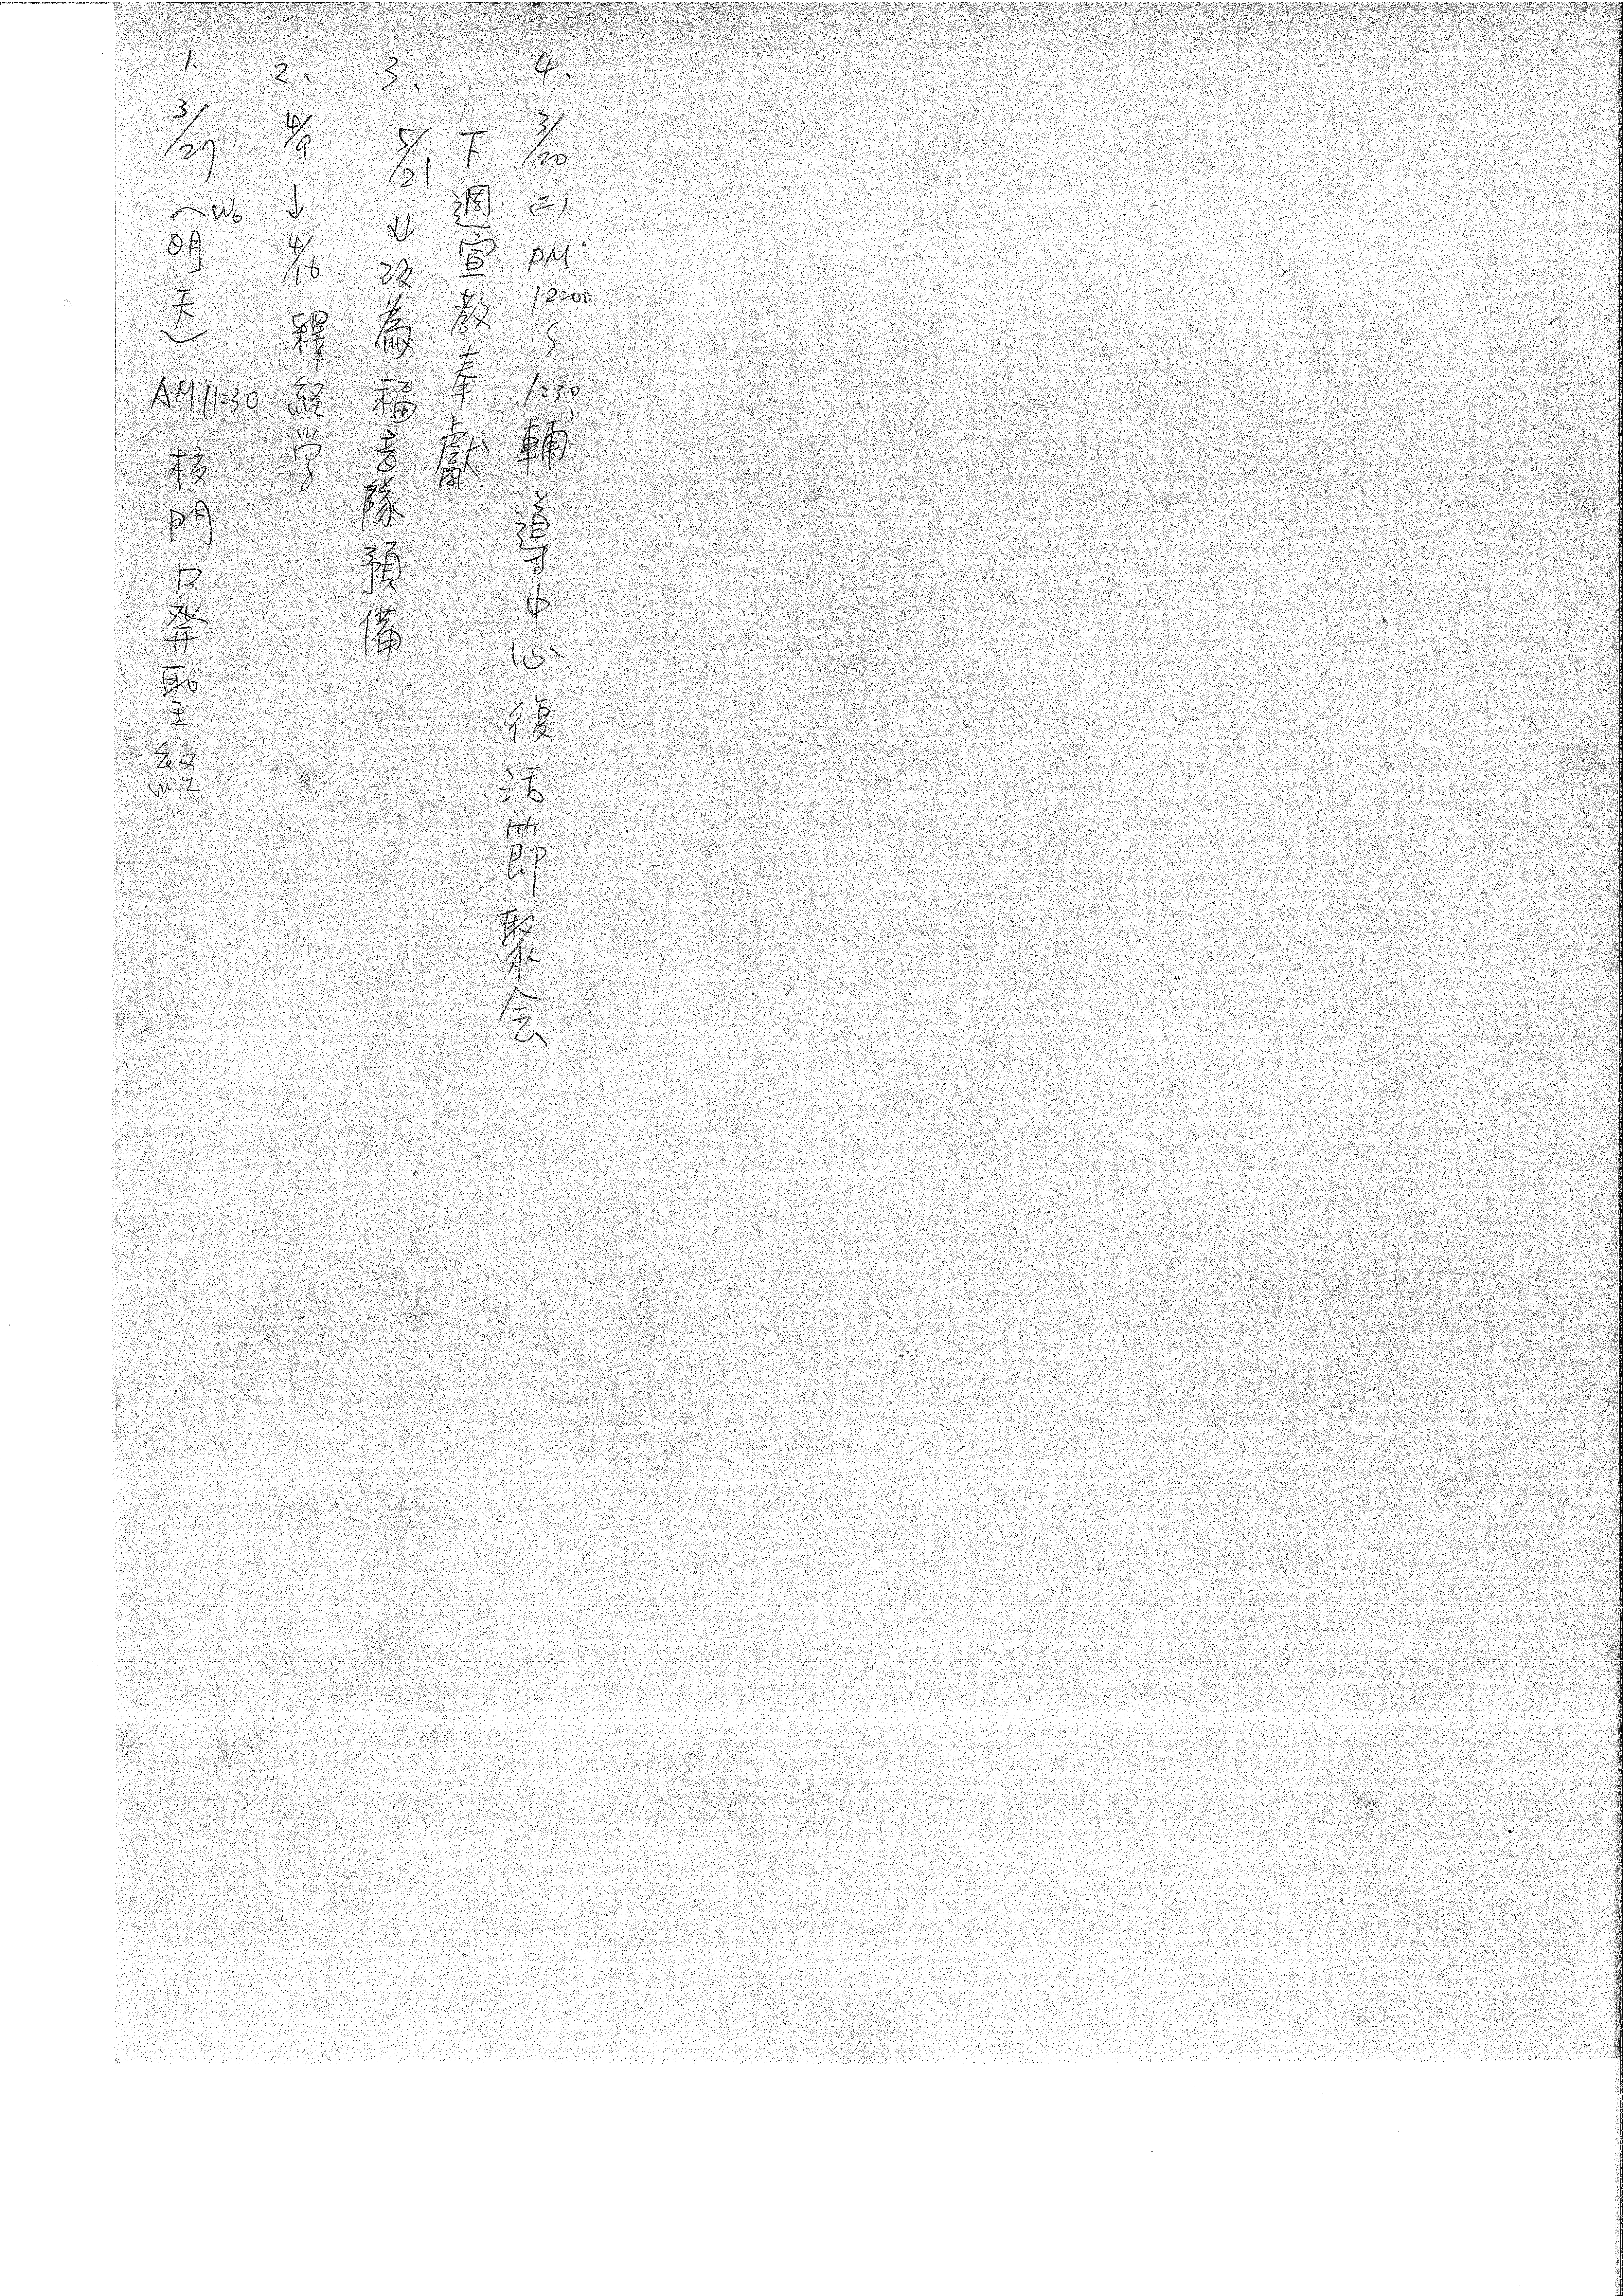 1、3/27(W6明天)AM11:30 校門口発聖経
2、4/9↓4/16 釋経学
3、5/21↓改為福音隊預備
下週宣教奉獻
4、3/20(二)PM12:00~1:30輔導中心復活節聚会